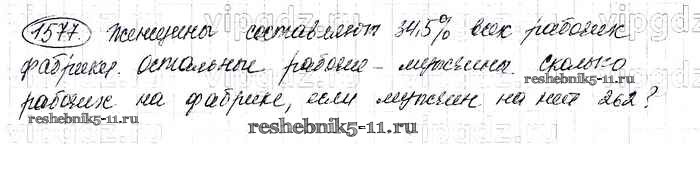 1577. Женщины составляют 34,5% всех рабочих
фабрики. Остальные рабочие - мужчины. Сколько
рабочих на фабрике, если мужчин на ней 262?
reshebnik5-11.ru
reshebnik5-11.ru